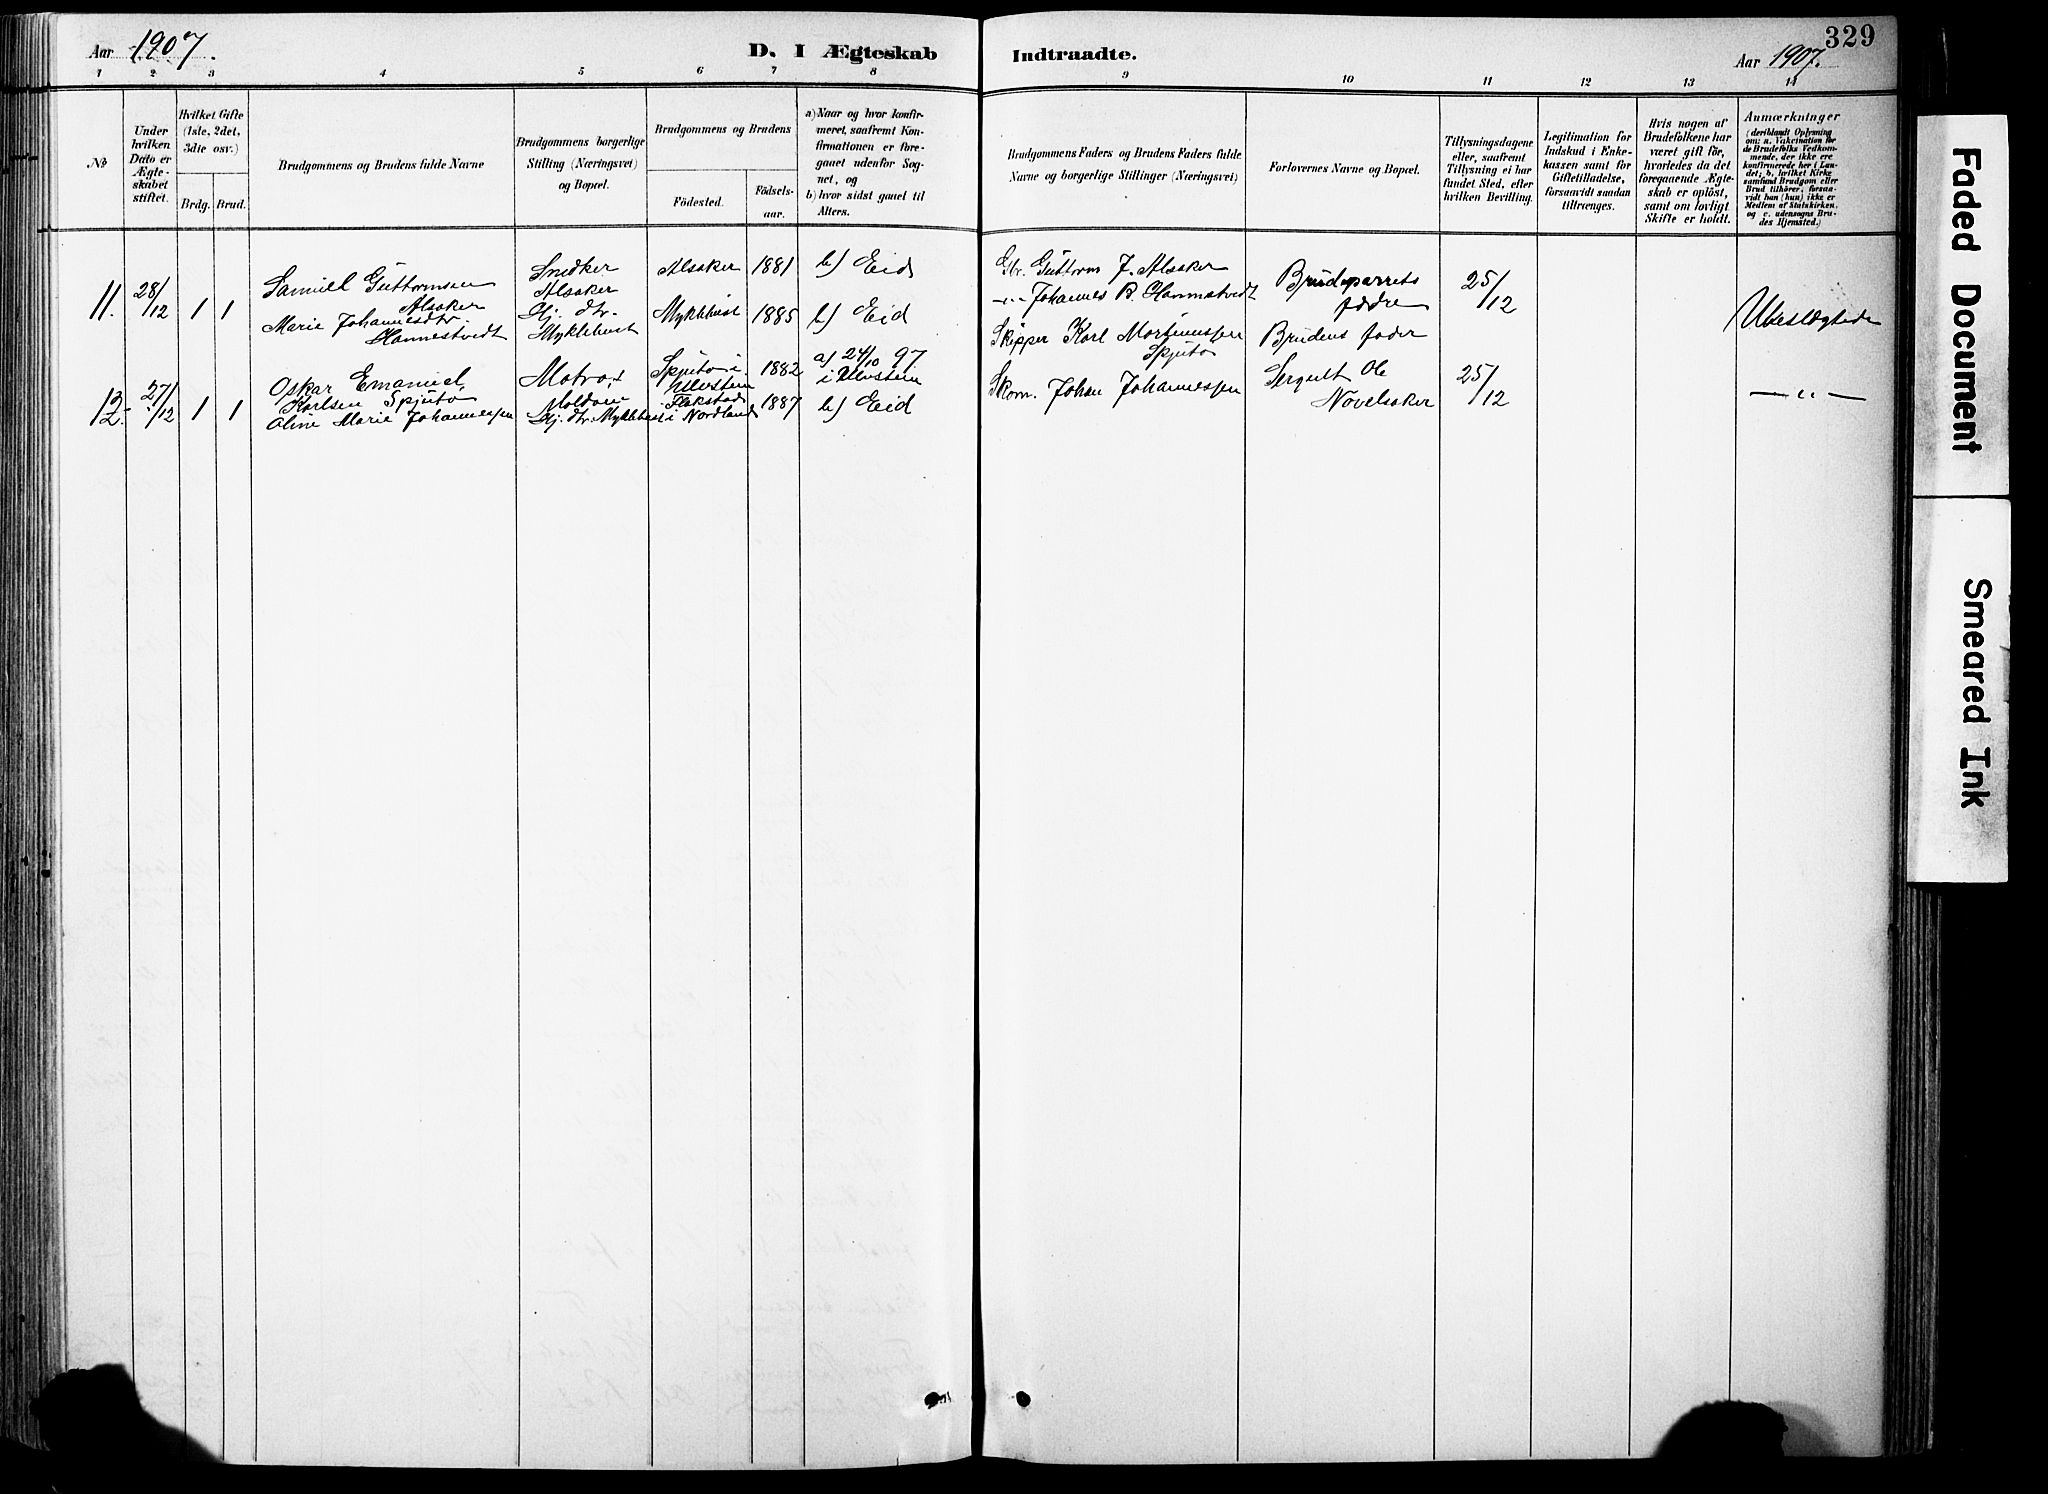 Aar 1907.
D. I Ægteskab Indtraadte.
329
Aar 1907.
1 2 3 4 5 6 7 8 9 10 11 12 13 14
No
Under hvilken Dato er Ægte-skabet stiftet.
Hvilket Gifte (1ste, 2det, 3die osv.)
Brdg. Brud.
Brudgommens og Brudens fulde Navne
Brudgommens borgerlige Stilling (Næringsvei) og Bopæl.
Brudgommens og Brudens
Födested.
Födsels-aar.
a) Naar og hvor konfir-meret, saafremt Kon-firmationen er fore-gaaet udenfor Sog-net, og
b) hvor sidst gaaet til Alters.
Brudgommens Faders og Brudens Faders fulde Navne og borgerlige Stillinger (Næringsvei)
Forlovernes Navne og Bopæl.
Tillysningsdagene eller, saafremt Tillysning ei har fundet Sted, efter hvilken Bevilling.
Legitimation for Indskud i Enke-kassen samt for Giftetilladelse, forsaavidt saadan tiltrænges.
Hvis nogen af Brudefolkene har været gift för, hvorledes da det foregaaende Ægte-skab er oplöst, samt om lovligt Skifte er holdt.
Anmærkninger
(deriblandt Oplysning om: a. Vakcination for de Brudefolks Vedkom-mende, der ikke ere konfirmerede her i Lan-det; b. hvilket Kirke samfund Brudgom eller Brud tilhörer, forsaa-vidt han (hun) ikke er Medlem af Statskirken, og c. udensogns Bru-des Hjemsted.)
11. 28/12 1 1
Samuel Guttormsen Alsaker
Snedker Alsaker
Alsaker 1881 b) Eid
Gbr. Guttorm J. Alsaker
Brudeparrets fædre
25/12
Ubeslægtede
Marie Johannesdtr. Hannestvedt
Gj. dtr. Myklebust
Myklebust 1885 b) Eid
-"- Johannes B. Hannestvedt
12. 27/12 1 1
Oskar Emanuel Karlsen Spjutø
Matros Moldøen
Spjutø i Utvstein 1882 a) 24/10 97 i Utvstein
Skipper Karl Spjutø
Brudens fader
25/12
-"-
Oline Marie Johannessen
Gj. dtr. Myklebust
Flakstad i Nordland 1887 b) Eid
Skom. Johan Johannessen
Ole
Faded Document
Smeared Ink